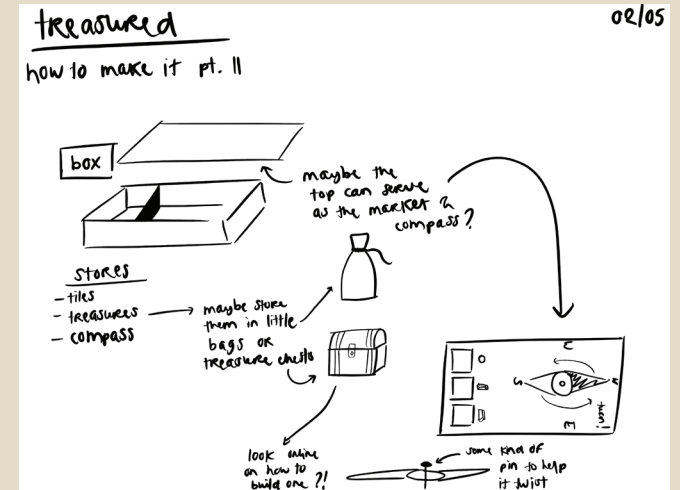 treasured
02/05
how to make it pt. II
box
maybe the
top can serve
as the market &
compass?
stores
- tiles
- treasures
- compass
maybe store
them in little
bags or
treasure chests
look online
on how to
build one ?!
S
N
E
turn!
some kind of
pin to help
it twist